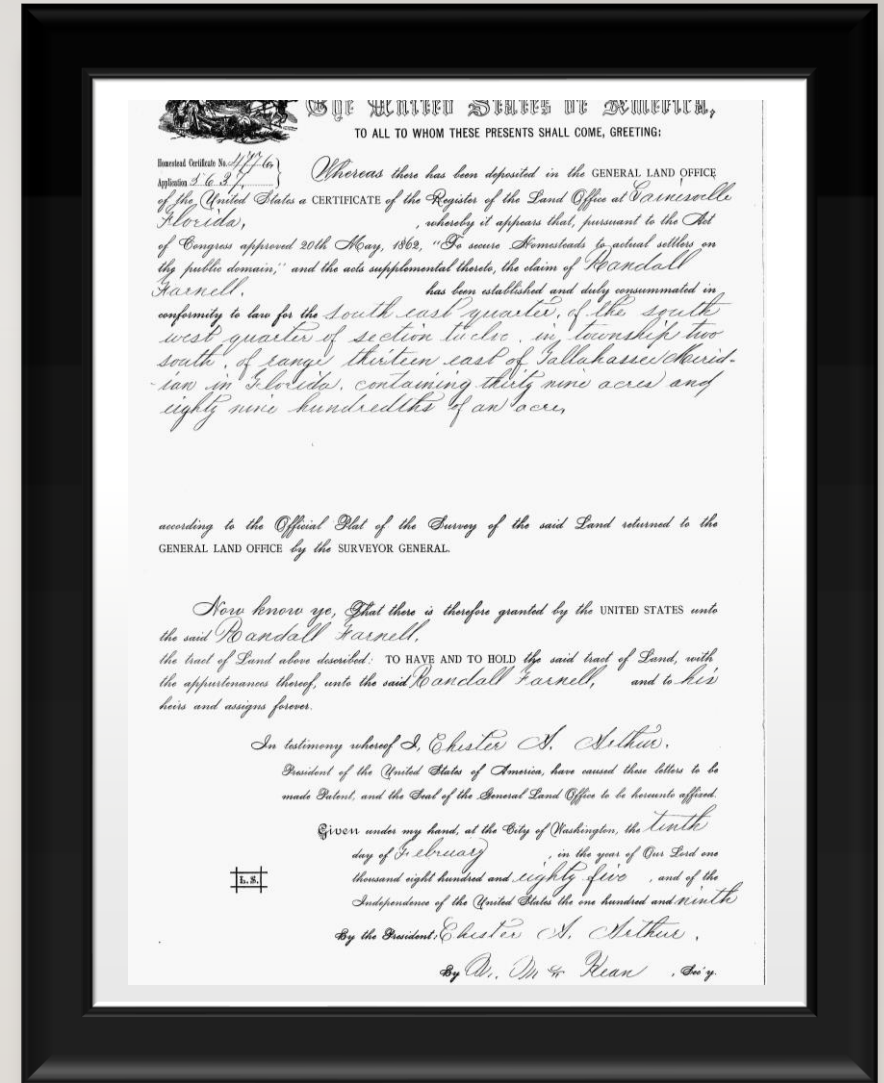 The United States of America,
TO ALL TO WHOM THESE PRESENTS SHALL COME, GREETING:
Homestead Certificate No. 4776
Application 5637
Whereas there has been deposited in the GENERAL LAND OFFICE
of the United States a CERTIFICATE of the Register of the Land Office at Gainesville
Florida, , whereby it appears that, pursuant to the Act
of Congress approved 20th May, 1862, "To secure Homesteads to actual settlers on
the public domain," and the acts supplemental thereto, the claim of Randall
Farnell. has been established and duly consummated in
conformity to law for the South east quarter, of the south
west quarter of section twelve, in township two
south, of range thirteen east of Tallahassee Merid-
-ian in Florida, containing thirty nine acres and
eighty nine hundredths of an acre,
according to the Official Plat of the Survey of the said Land returned to the
GENERAL LAND OFFICE by the SURVEYOR GENERAL.
Now know ye, That there is therefore granted by the UNITED STATES unto
the said Randall Farnell,
the tract of Land above described: TO HAVE AND TO HOLD the said tract of Land, with
the appurtenances thereof, unto the said Randall Farnell, and to his
heirs and assigns forever.
In testimony whereof I, Chester A. Arthur,
President of the United States of America, have caused these letters to be
made Patent, and the Seal of the General Land Office to be hereunto affixed.
Given under my hand, at the City of Washington, the tenth
day of February , in the year of Our Lord one
thousand eight hundred and eighty five , and of the
L.S.
Independence of the United States the one hundred and ninth
By the President: Chester A. Arthur,
By Wm. McKean , Sec'y.